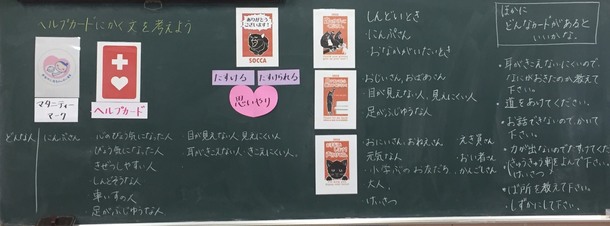 ヘルプカードにかく文を考えよう
マタニティー
マーク
ヘルプカード
ありがとう
ございます!
SOCCA
たすける
たすけられる
思いやり
どんな人
にんぷさん
心のびょう気になった人
びょう気になった人
きぜつしやすい人
しんどそうな人
車いすの人
足がふじゆうな人
目が見えない人、見えにくい人
耳がきこえない人、きこえにくい人。
しんどいとき
・にんぷさん
・おなかがいたいとき
おじいさん、おばあさん
・目が見えない人、見えにくい人
足がふじゆうな人
・おにいさん、おねえさん
元気な人
・小学生のお友だち
大人。
けいさつ
えき員さん
・おい者さん
・かんごしさん
ほかに
どんなカードがあると
いいかな。
・耳がきこえないにくいので、
なにがおきたのか教えて
下さい。
・道をあけてください。
・お話できないので、かいて
下さい。
・力が出ないのでたすけてください
・きゅうきゅう車をよんで下さい。
・けいさつ
・ば所を教えて下さい。
・しずかにして下さい。